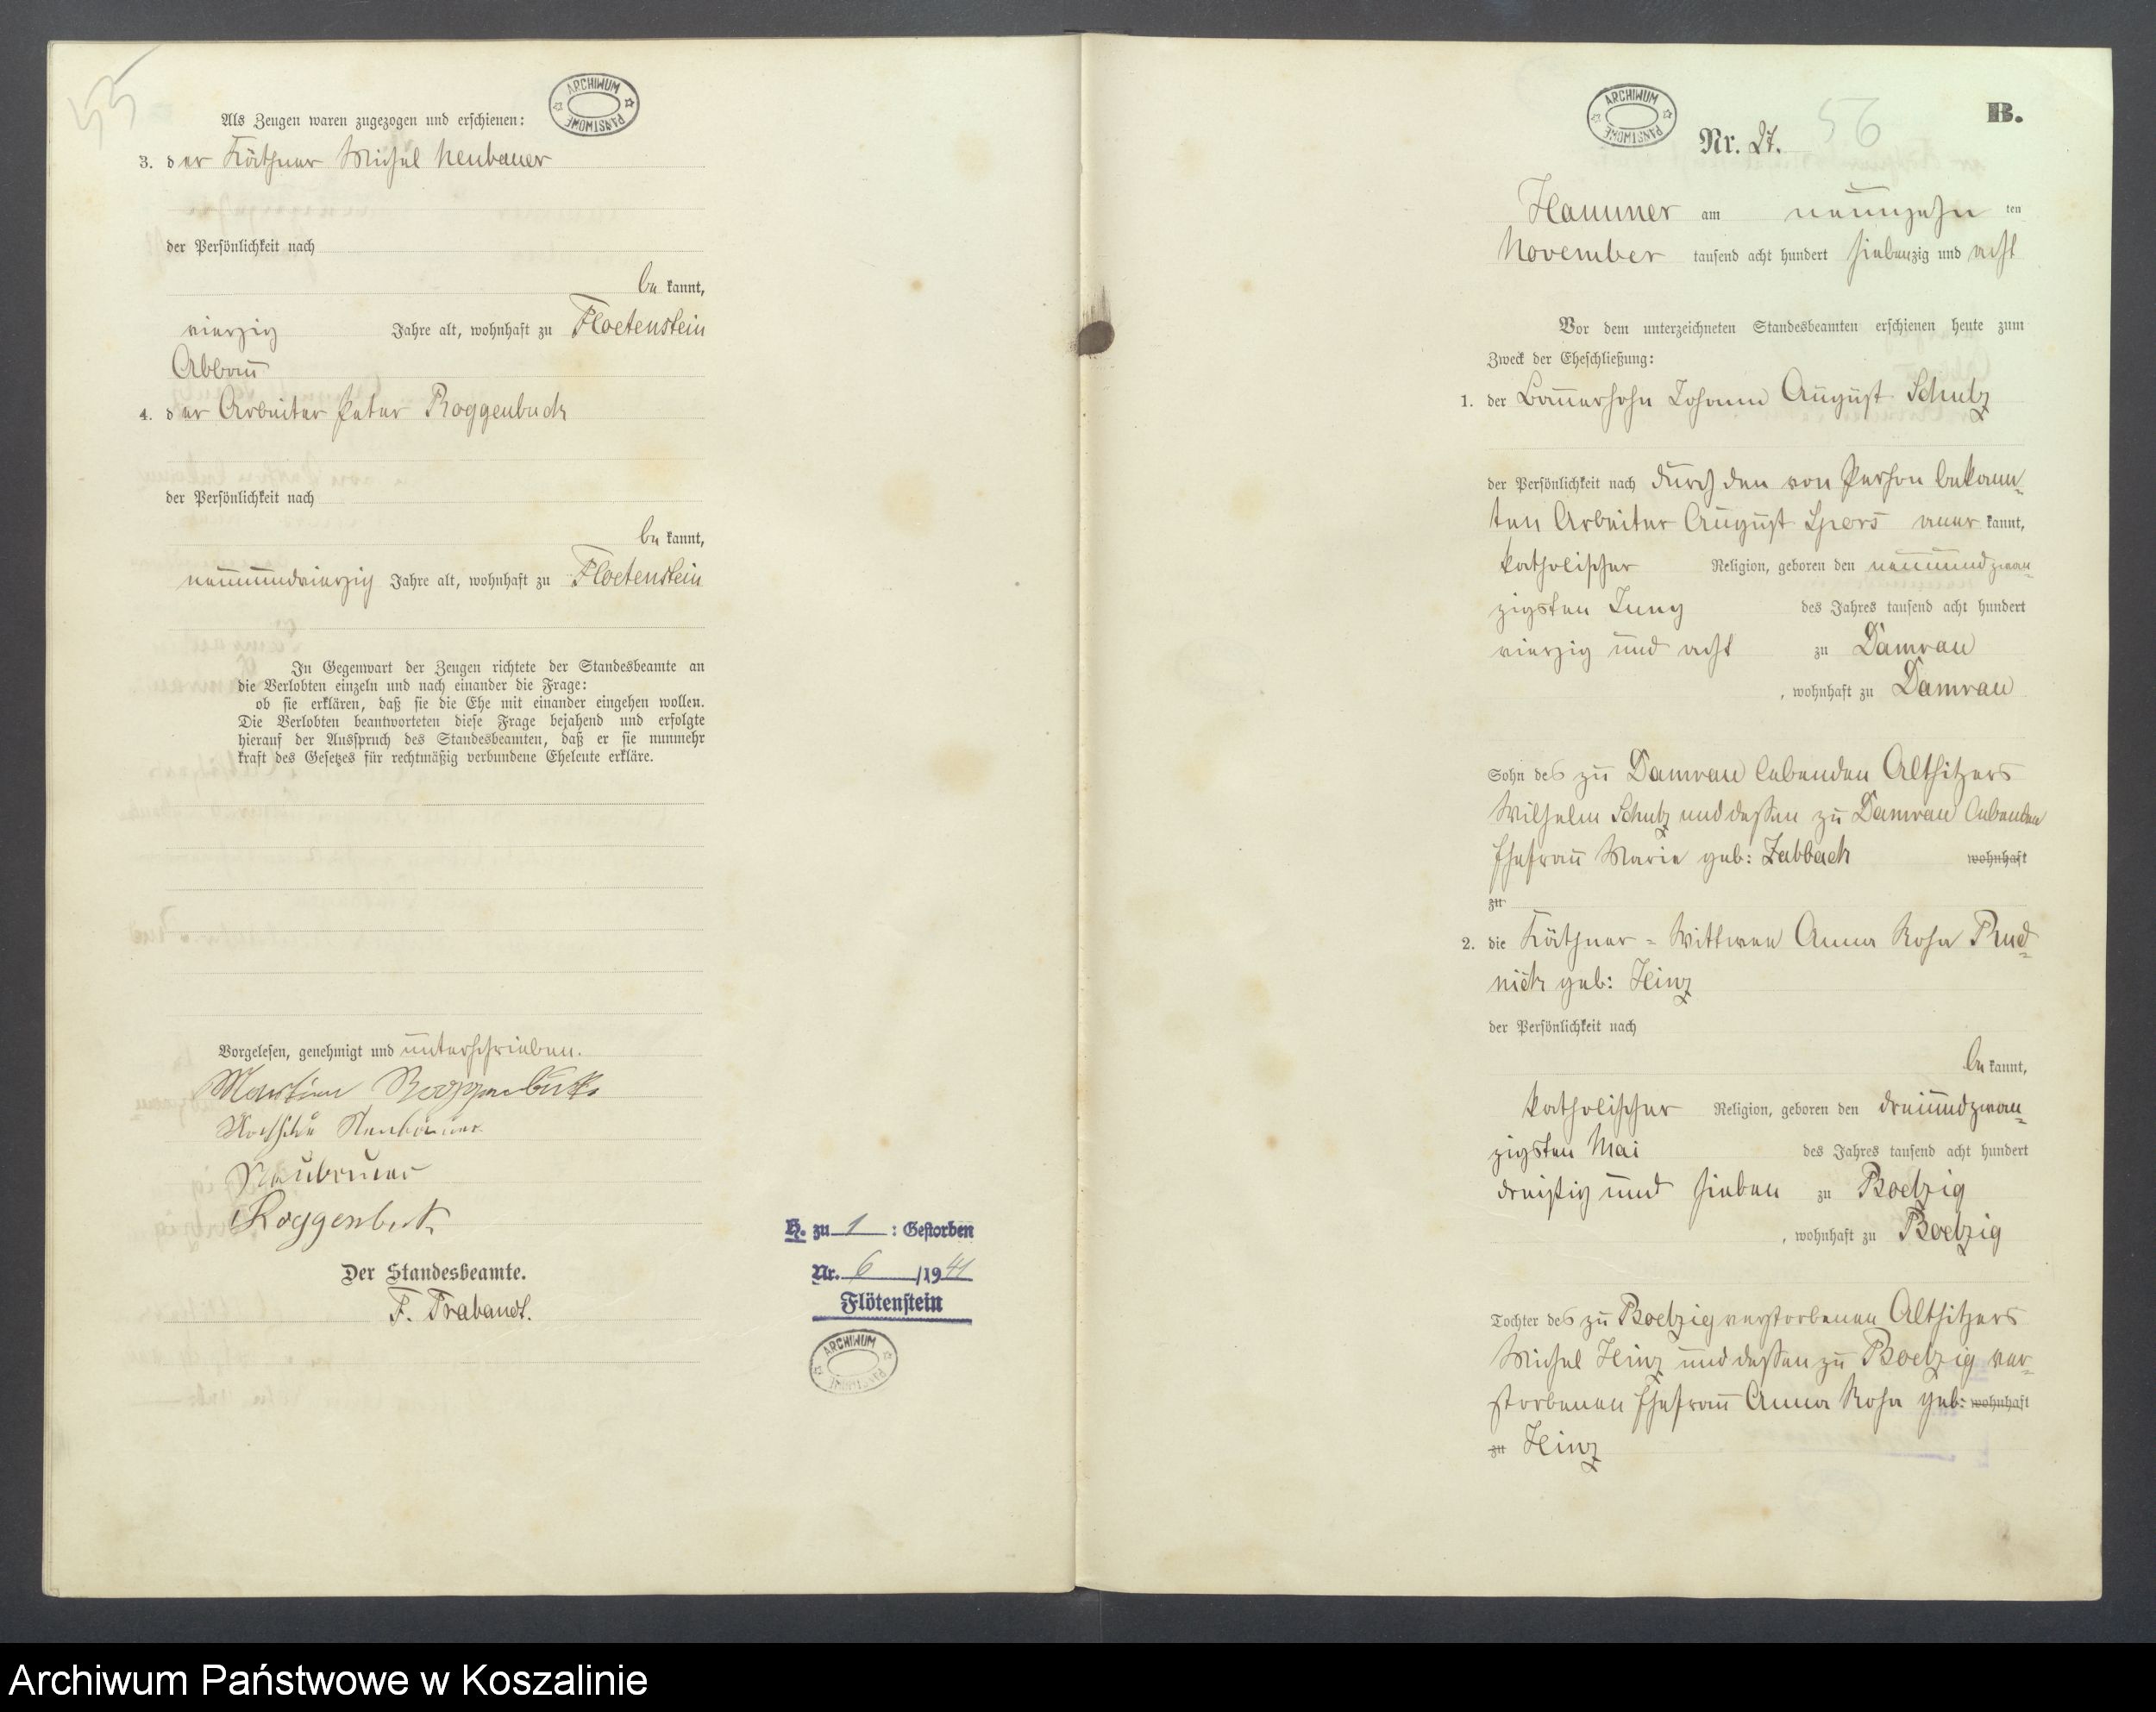 55
ARCHIWUM PAŃSTWOWE
Als Zeugen waren zugezogen und erschienen:
3. der Käthner Michel Neubauer
der Persönlichkeit nach
be kannt,
vierzig Jahre alt, wohnhaft zu Floetenstein
Abbau
4. der Arbeiter Peter Roggenbuck
der Persönlichkeit nach
be kannt,
neunundvierzig Jahre alt, wohnhaft zu Floetenstein
In Gegenwart der Zeugen richtete der Standesbeamte an
die Verlobten einzeln und nach einander die Frage:
ob sie erklären, daß sie die Ehe mit einander eingehen wollen.
Die Verlobten beantworteten diese Frage bejahend und erfolgte
hierauf der Ausspruch des Standesbeamten, daß er sie nunmehr
kraft des Gesetzes für rechtmäßig verbundene Eheleute erkläre.
Vorgelesen, genehmigt und unterschrieben.
Martin Roggenbuck
Neubauer
Neubauer
Roggenbuck
Der Standesbeamte.
F. Trabandt.
H. zu 1 : Gestorben
Nr. 6 /1941
Flötenstein
ARCHIWUM PAŃSTWOWE
ARCHIWUM PAŃSTWOWE
56
B.
Nr. 27.
Hammer am neunzehn ten
November tausend acht hundert siebenzig und acht
Vor dem unterzeichneten Standesbeamten erschienen heute zum
Zweck der Eheschließung:
1. der Bauersohn Johann August Schulz
der Persönlichkeit nach durch den von Person bekann-
ten Arbeiter August Spors aner kannt,
katholischer Religion, geboren den neunundzwan-
zigsten Juny des Jahres tausend acht hundert
vierzig und acht zu Damrau
, wohnhaft zu Damrau
Sohn des zu Damrau lebenden Altsitzers
Wilhelm Schulz und dessen zu Damrau lebenden
Ehefrau Marie geb: Zabbach wohnhaft
zu
2. die Käthner-Wittwee Anna Rosa Prud-
nick geb: Hinz
der Persönlichkeit nach
be kannt,
katholischer Religion, geboren den dreiundzwan-
zigsten Mai des Jahres tausend acht hundert
dreißig und sieben zu Boelzig
, wohnhaft zu Boelzig
Tochter des zu Boelzig verstorbenen Altsitzers
Michel Hinz und dessen zu Boelzig ver-
storbenen Ehefrau Anna Rosa geb: wohnhaft
zu Hinz
Archiwum Państwowe w Koszalinie